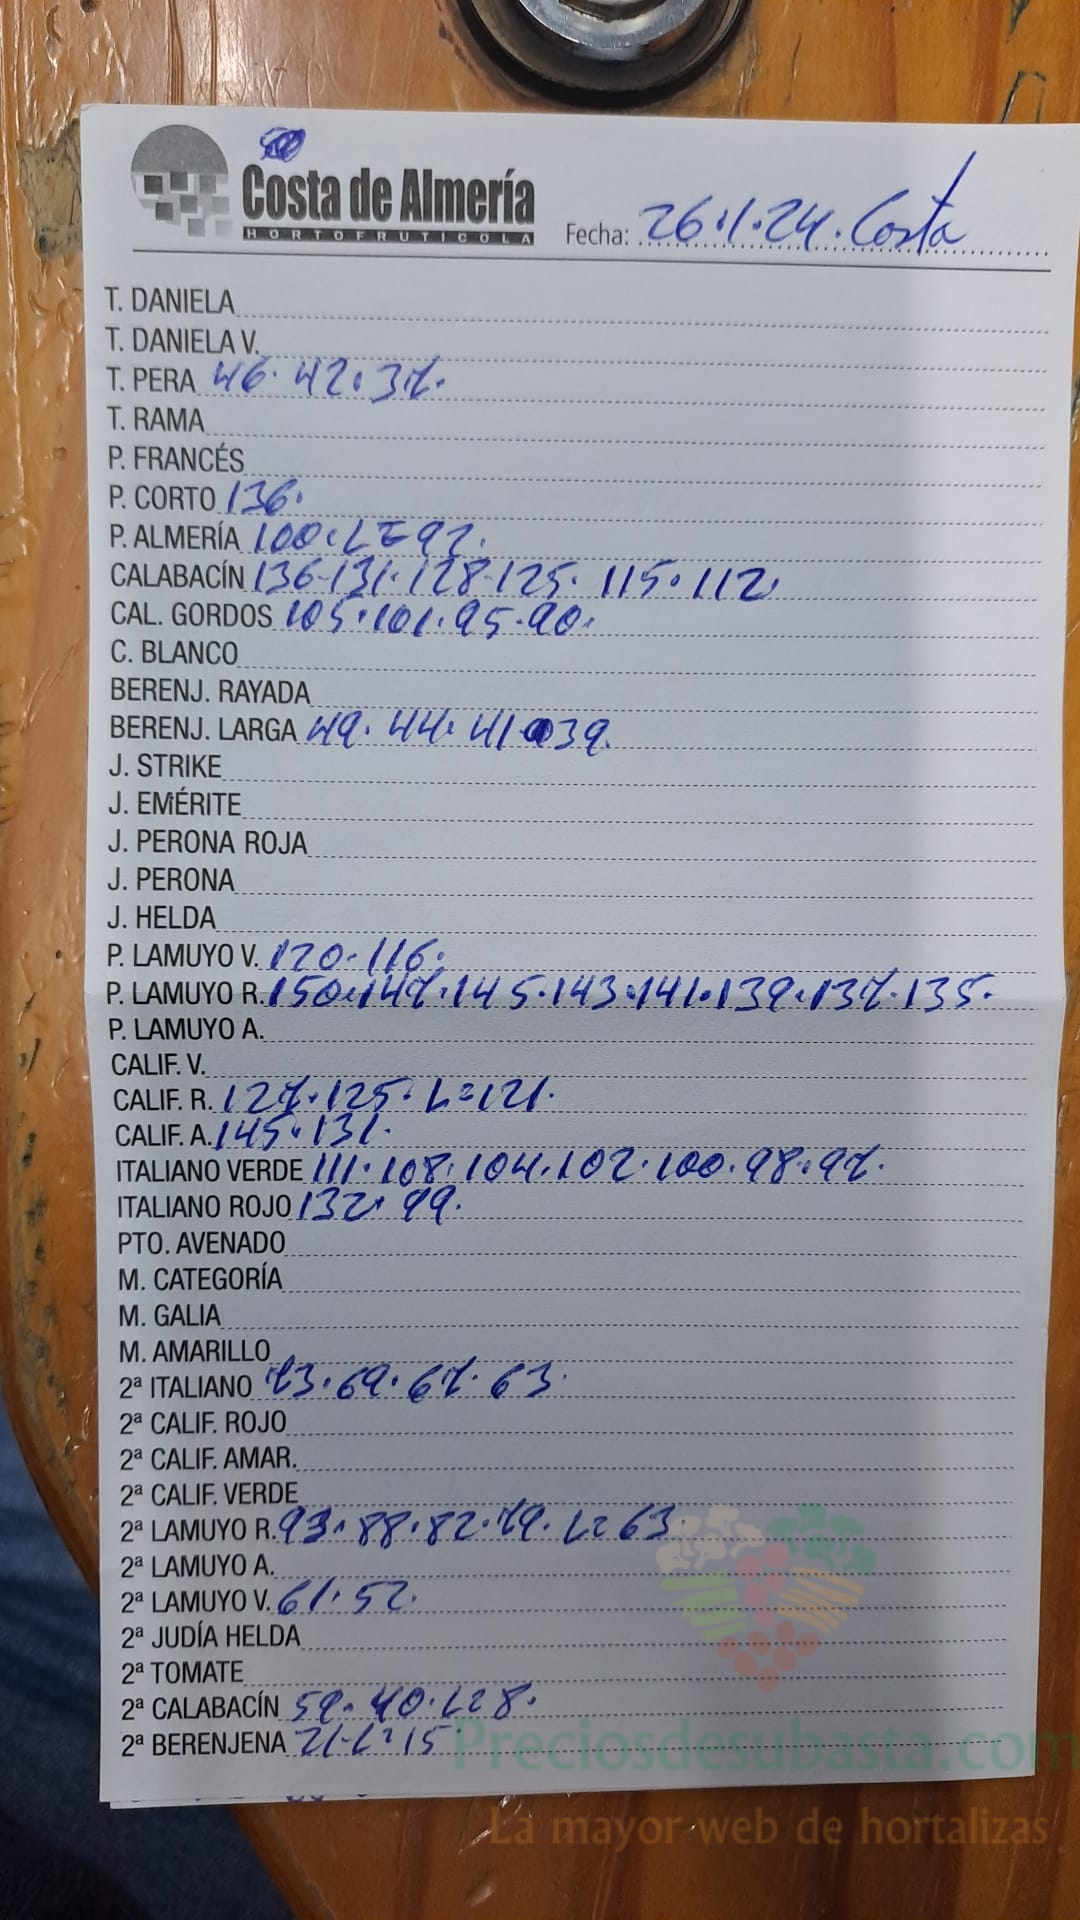 Costa de Almería
HORTOFRUTICOLA
Fecha: 26.1.24. Costa
T. DANIELA
T. DANIELA V.
T. PERA 46. 42. 37.
T. RAMA
P. FRANCÉS
P. CORTO 136.
P. ALMERÍA 100. L=92.
CALABACÍN 136-131. 128-125. 115. 112.
CAL. GORDOS 105. 101. 95. 90.
C. BLANCO
BERENJ. RAYADA
BERENJ. LARGA 49. 44. 41. 39.
J. STRIKE
J. EMÉRITE
J. PERONA ROJA
J. PERONA
J. HELDA
P. LAMUYO V. 120. 116.
P. LAMUYO R. 150. 147. 145. 143. 141. 139. 137. 135.
P. LAMUYO A.
CALIF. V.
CALIF. R. 127. 125. L=121.
CALIF. A. 145. 131.
ITALIANO VERDE 111. 108. 104. 102. 100. 98. 97.
ITALIANO ROJO 132. 99.
PTO. AVENADO
M. CATEGORÍA
M. GALIA
M. AMARILLO
2ª ITALIANO 73. 69. 67. 63.
2ª CALIF. ROJO
2ª CALIF. AMAR.
2ª CALIF. VERDE
2ª LAMUYO R. 93. 88. 82. 79. L=63.
2ª LAMUYO A.
2ª LAMUYO V. 61. 52.
2ª JUDÍA HELDA
2ª TOMATE
2ª CALABACÍN 59. 40. L=8.
2ª BERENJENA 21-L=15
Preciosdesubasta.com
La mayor web de hortalizas